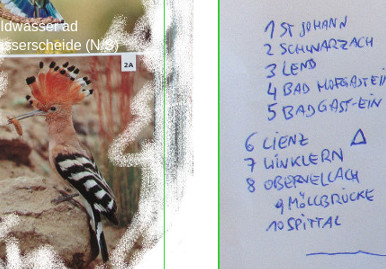 ldwässer ad
sserscheide (N/S)
2A
1 ST JOHANN
2 SCHWARZACH
3 LEND
4 BAD HOFGASTEIN
5 BADGAST-EIN
6 LIENZ
7 WINKLERN
8 OBERVELLACH
9 MÖLLBRÜCKE
10 SPITTAL